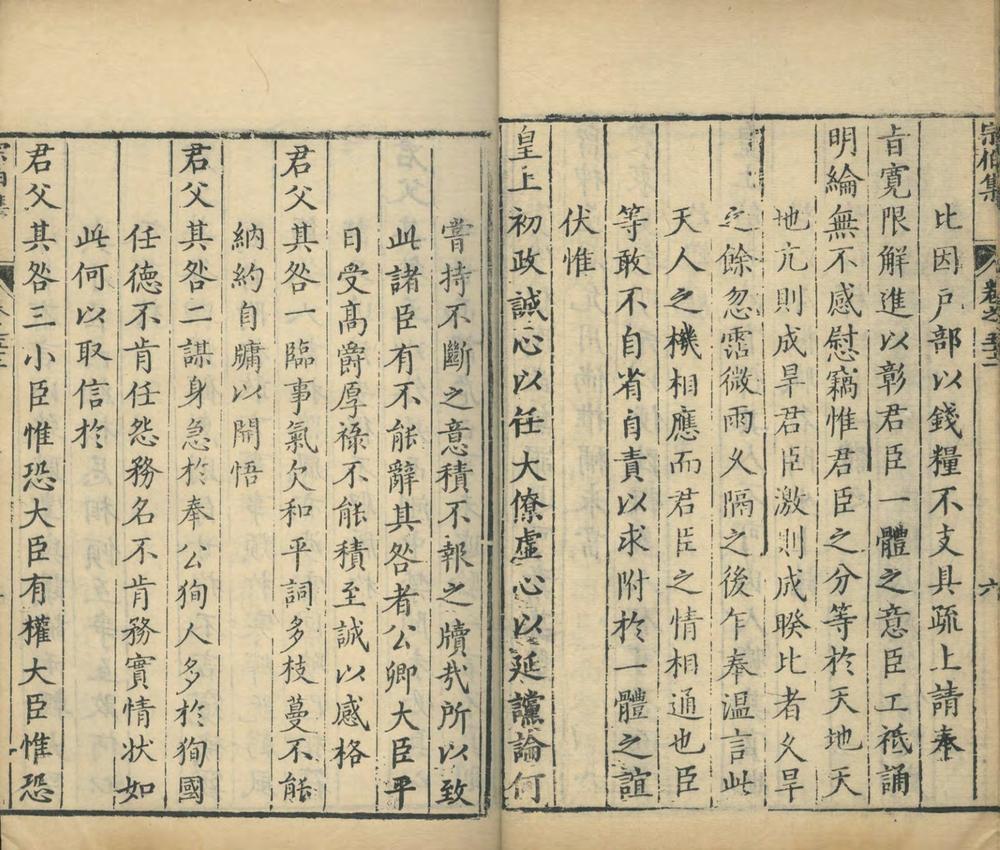 宗伯集
卷之
六
比因戶部以錢糧不支具疏上請奉
旨寬限解進以彰君臣一體之意臣工祇誦
明綸無不感慰竊惟君臣之分等於天地天
地亢則成旱君臣激則成睽比者久旱
之餘忽霑微雨久隔之後乍奉溫言此
天人之機相應而君臣之情相通也臣
等敢不自省自責以求附於一體之誼
伏惟
皇上初政誠心以任大僚虛心以延讜論何
嘗持不斷之意積不報之牘哉所以致
此諸臣有不能辭其咎者公卿大臣平
日受高爵厚祿不能積至誠以感格
君父其咎一臨事氣欠和平詞多枝蔓不能
納約自牖以開悟
君父其咎二謀身急於奉公狥人多於狥國
任德不肯任怨務名不肯務實情狀如
此何以取信於
君父其咎三小臣惟恐大臣有權大臣惟恐